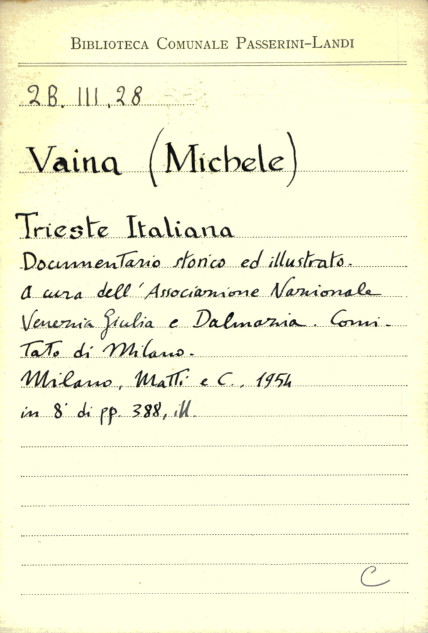 BIBLIOTECA COMUNALE PASSERINI-LANDI
2B. III. 28
Vaina (Michele)
Trieste Italiana
Documentario storico ed illustrato.
A cura dell'Associazione Nazionale
Venezia Giulia e Dalmazia. Comi-
tato di Milano.
Milano, Matti e C., 1954
in 8° di pp. 388, ill.
C